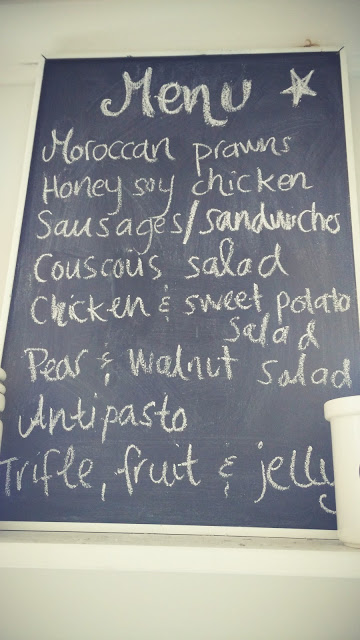 Menu
Moroccan prawns
Honey soy chicken
Sausages/sandwiches
Couscous salad
Chicken & sweet potato
salad
Pear & Walnut salad
Antipasto
Trifle, fruit & jelly